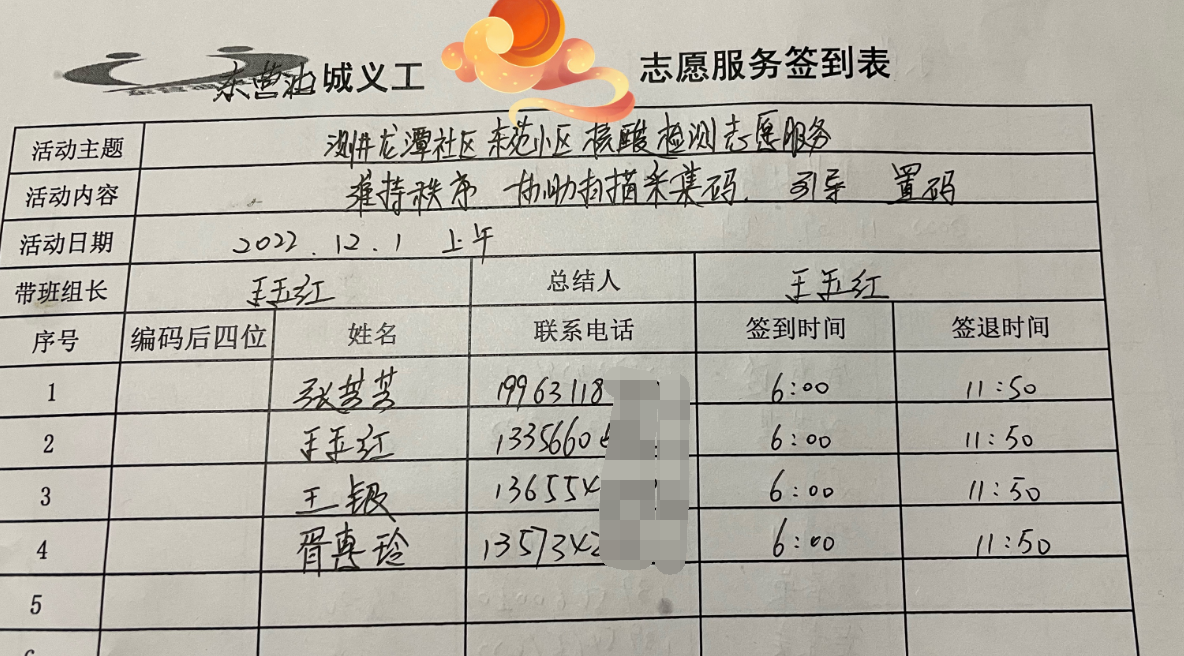 东营油城义工 志愿服务签到表
活动主题 测井龙潭社区 东范小区 核酸检测志愿服务
活动内容 维持秩序 协助扫描采集码. 引导 置码
活动日期 2022.12.1 上午
带班组长 王玉红 总结人 王玉红
序号 编码后四位 姓名 联系电话 签到时间 签退时间
1 张芸芸 19963118 6:00 11:50
2 王玉红 1335660 6:00 11:50
3 王银 136554 6:00 11:50
4 胥惠玲 1357342 6:00 11:50
5